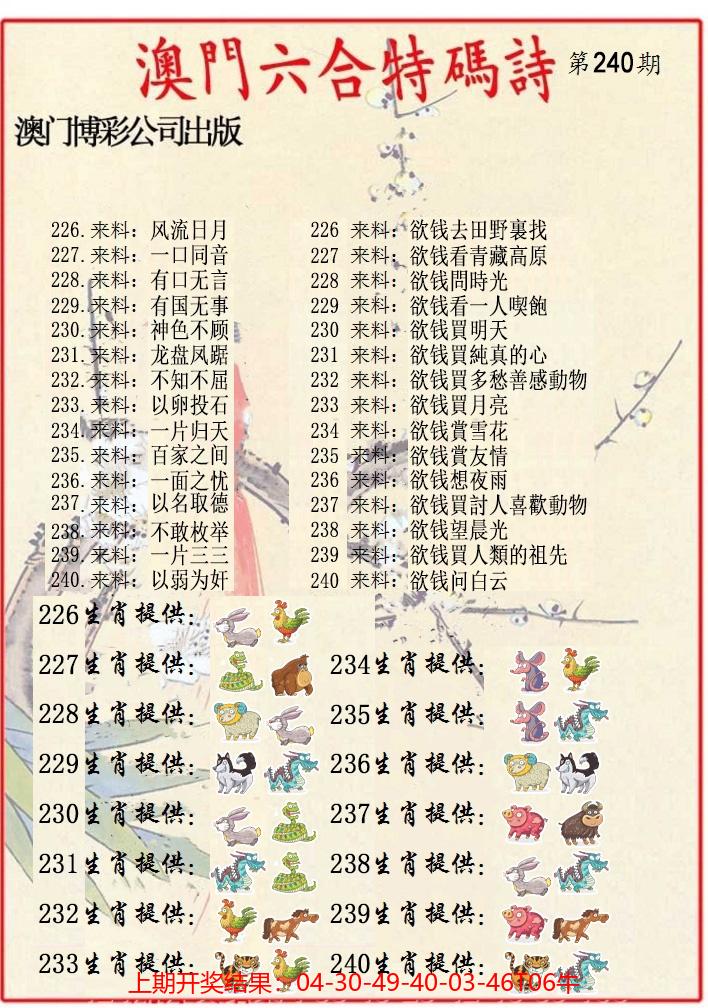 澳門六合特碼詩 第240期
澳门博彩公司出版
226.来料：风流日月
227.来料：一口同音
228.来料：有口无言
229.来料：有国无事
230.来料：神色不顾
231.来料：龙盘凤踞
232.来料：不知不屈
233.来料：以卵投石
234.来料：一片归天
235.来料：百家之间
236.来料：一面之忧
237.来料：以名取德
238.来料：不敢枚举
239.来料：一片三三
240.来料：以弱为奸
226 来料：欲钱去田野裏找
227 来料：欲钱看青藏高原
228 来料：欲钱問時光
229 来料：欲钱看一人喫飽
230 来料：欲钱買明天
231 来料：欲钱買純真的心
232 来料：欲钱買多愁善感動物
233 来料：欲钱買月亮
234 来料：欲钱賞雪花
235 来料：欲钱賞友情
236 来料：欲钱想夜雨
237 来料：欲钱買討人喜歡動物
238 来料：欲钱望晨光
239 来料：欲钱買人類的祖先
240 来料：欲钱问白云
226生肖提供：
227生肖提供：
228生肖提供：
229生肖提供：
230生肖提供：
231生肖提供：
232生肖提供：
233生肖提供：
234生肖提供：
235生肖提供：
236生肖提供：
237生肖提供：
238生肖提供：
239生肖提供：
240生肖提供：
上期开奖结果：04-30-49-40-03-46T06牛